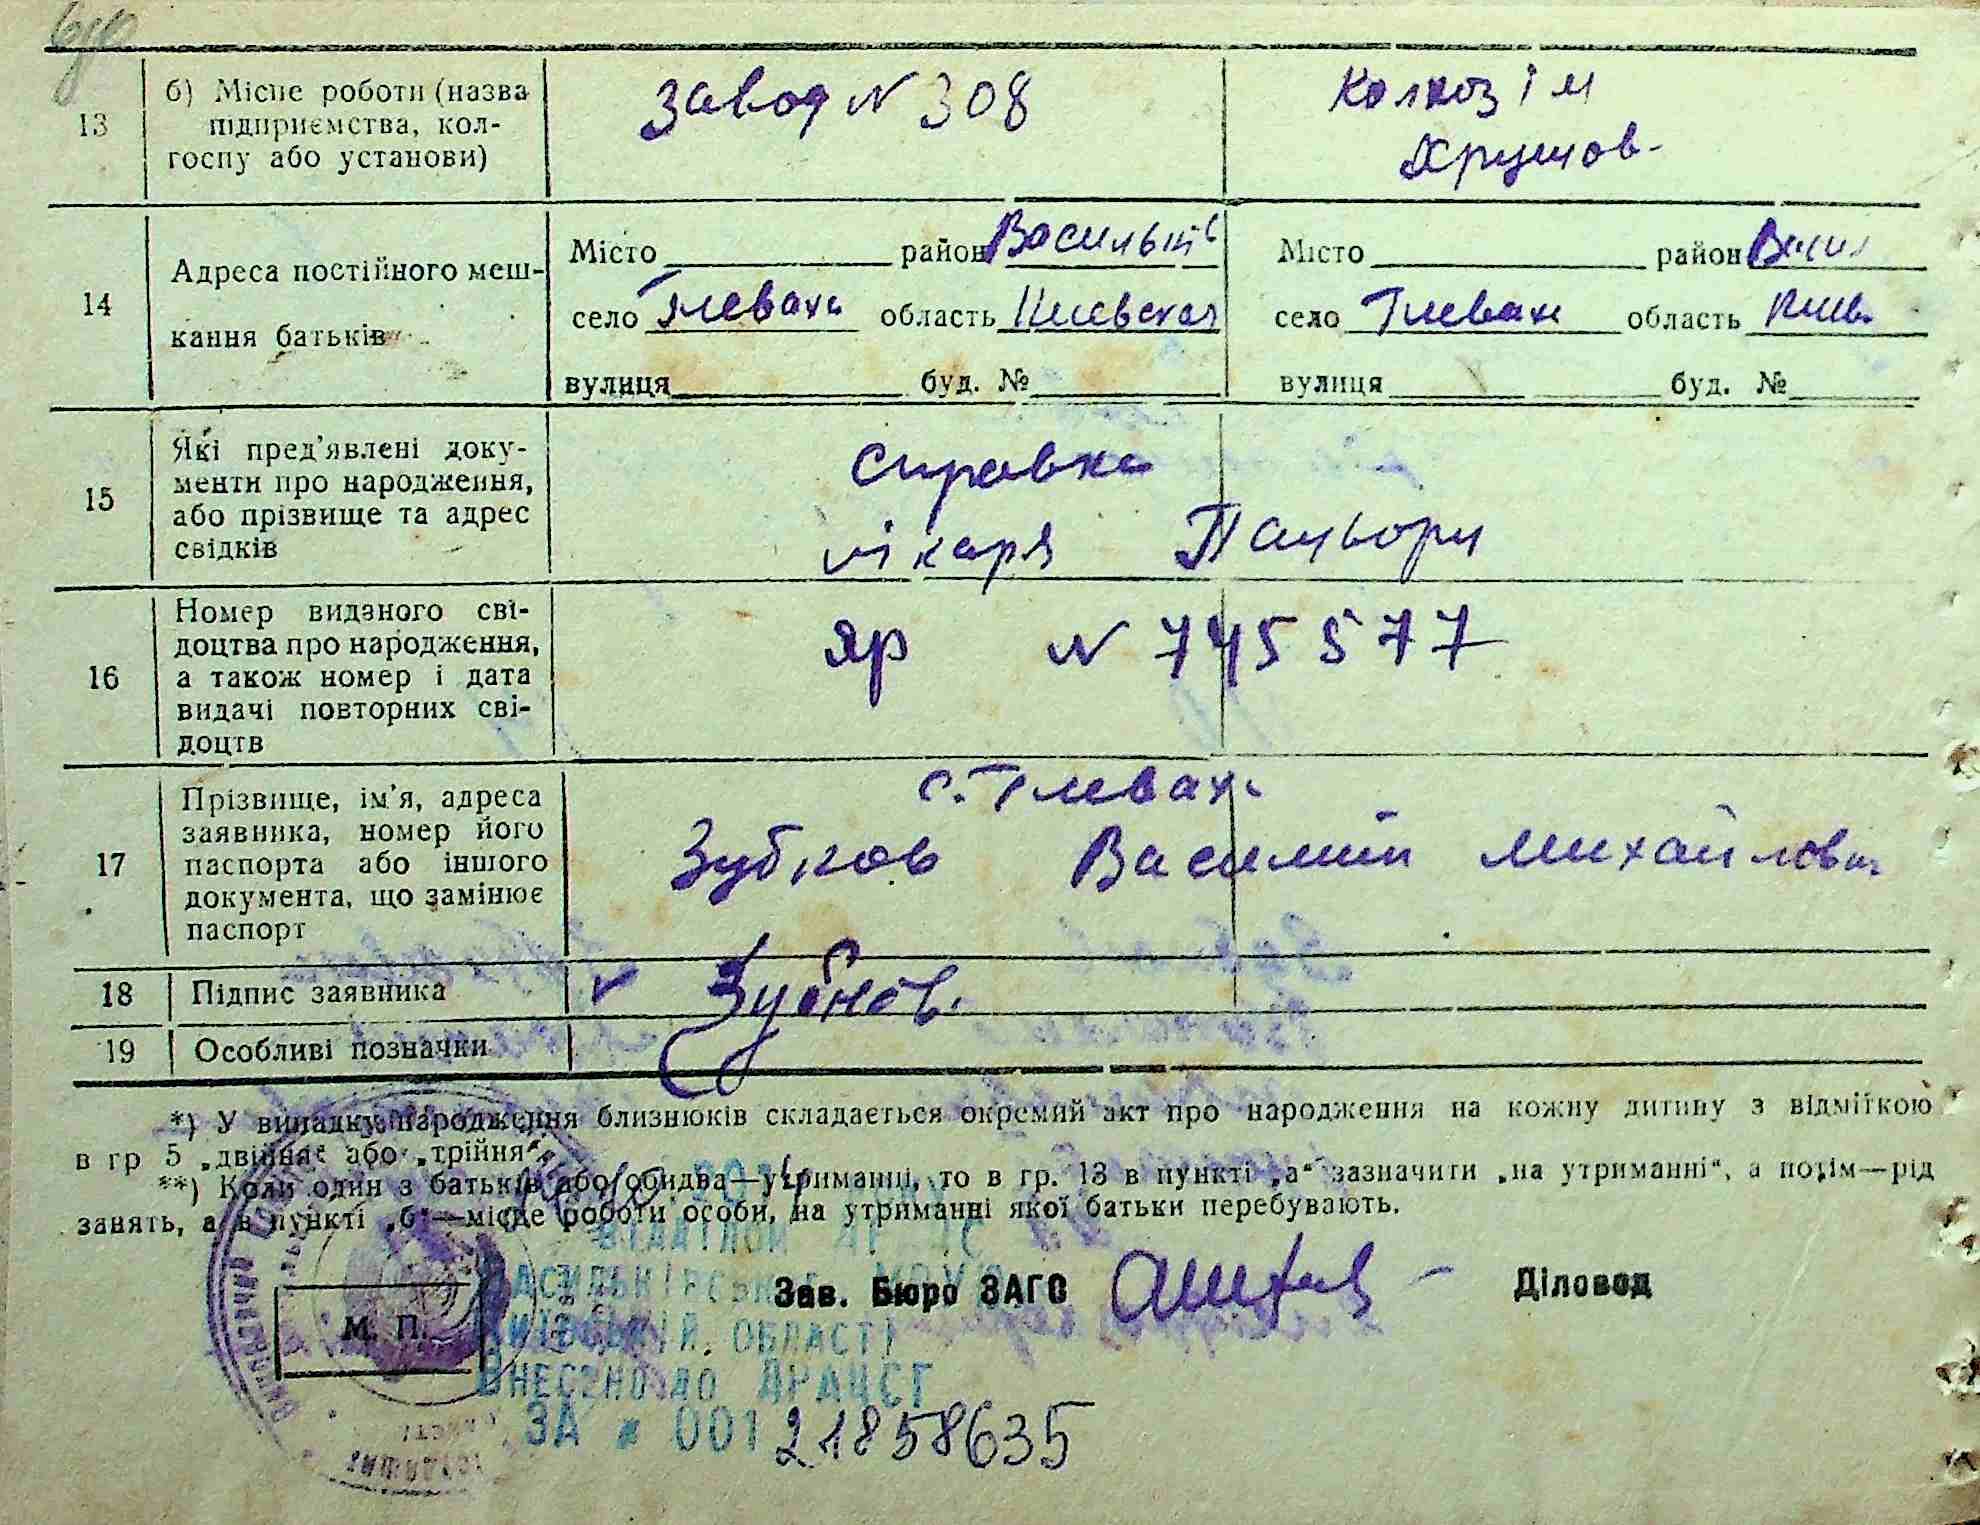 13
б) Місце роботи (назва
підприємства, кол-
госпу або установи)
Завод N 308
Колхоз ім
Хрущов-
14
Адреса постійного меш-
кання батьків
Місто район Васильків
село Глеваха область Киевская
вулиця буд. №
Місто район Васил
село Глеваха область Киев.
вулиця буд. №
15
Які пред'явлені доку-
менти про народження,
або прізвище та адрес
свідків
Справка
лікаря
16
Номер виданого сві-
доцтва про народження,
а також номер і дата
видачі повторних сві-
доцтв
ЯР N 745577
17
Прізвище, ім'я, адреса
заявника, номер його
паспорта або іншого
документа, що замінює
паспорт
с. Глеваха
Зубков Василий Михайлович
18
Підпис заявника
Зубков.
19
Особливі позначки
*) У випадку народження близнюків складається окремий акт про народження на кожну дитину з відміткою
в гр 5 „двійня" або „трійня".
**) Коли один з батьків або обидва—утриманці, то в гр. 13 в пункті „а" зазначити „на утриманні", а потім—рід
занять, а в пункті „б"—місце роботи особи, на утриманні якої батьки перебувають.
Зав. Бюро ЗАГС
Діловод
М. П.
КИЇВСЬКІЙ ОБЛАСТІ
ВНЕСЕНО ДО ДРАЦСГ
ЗА № 00121858635